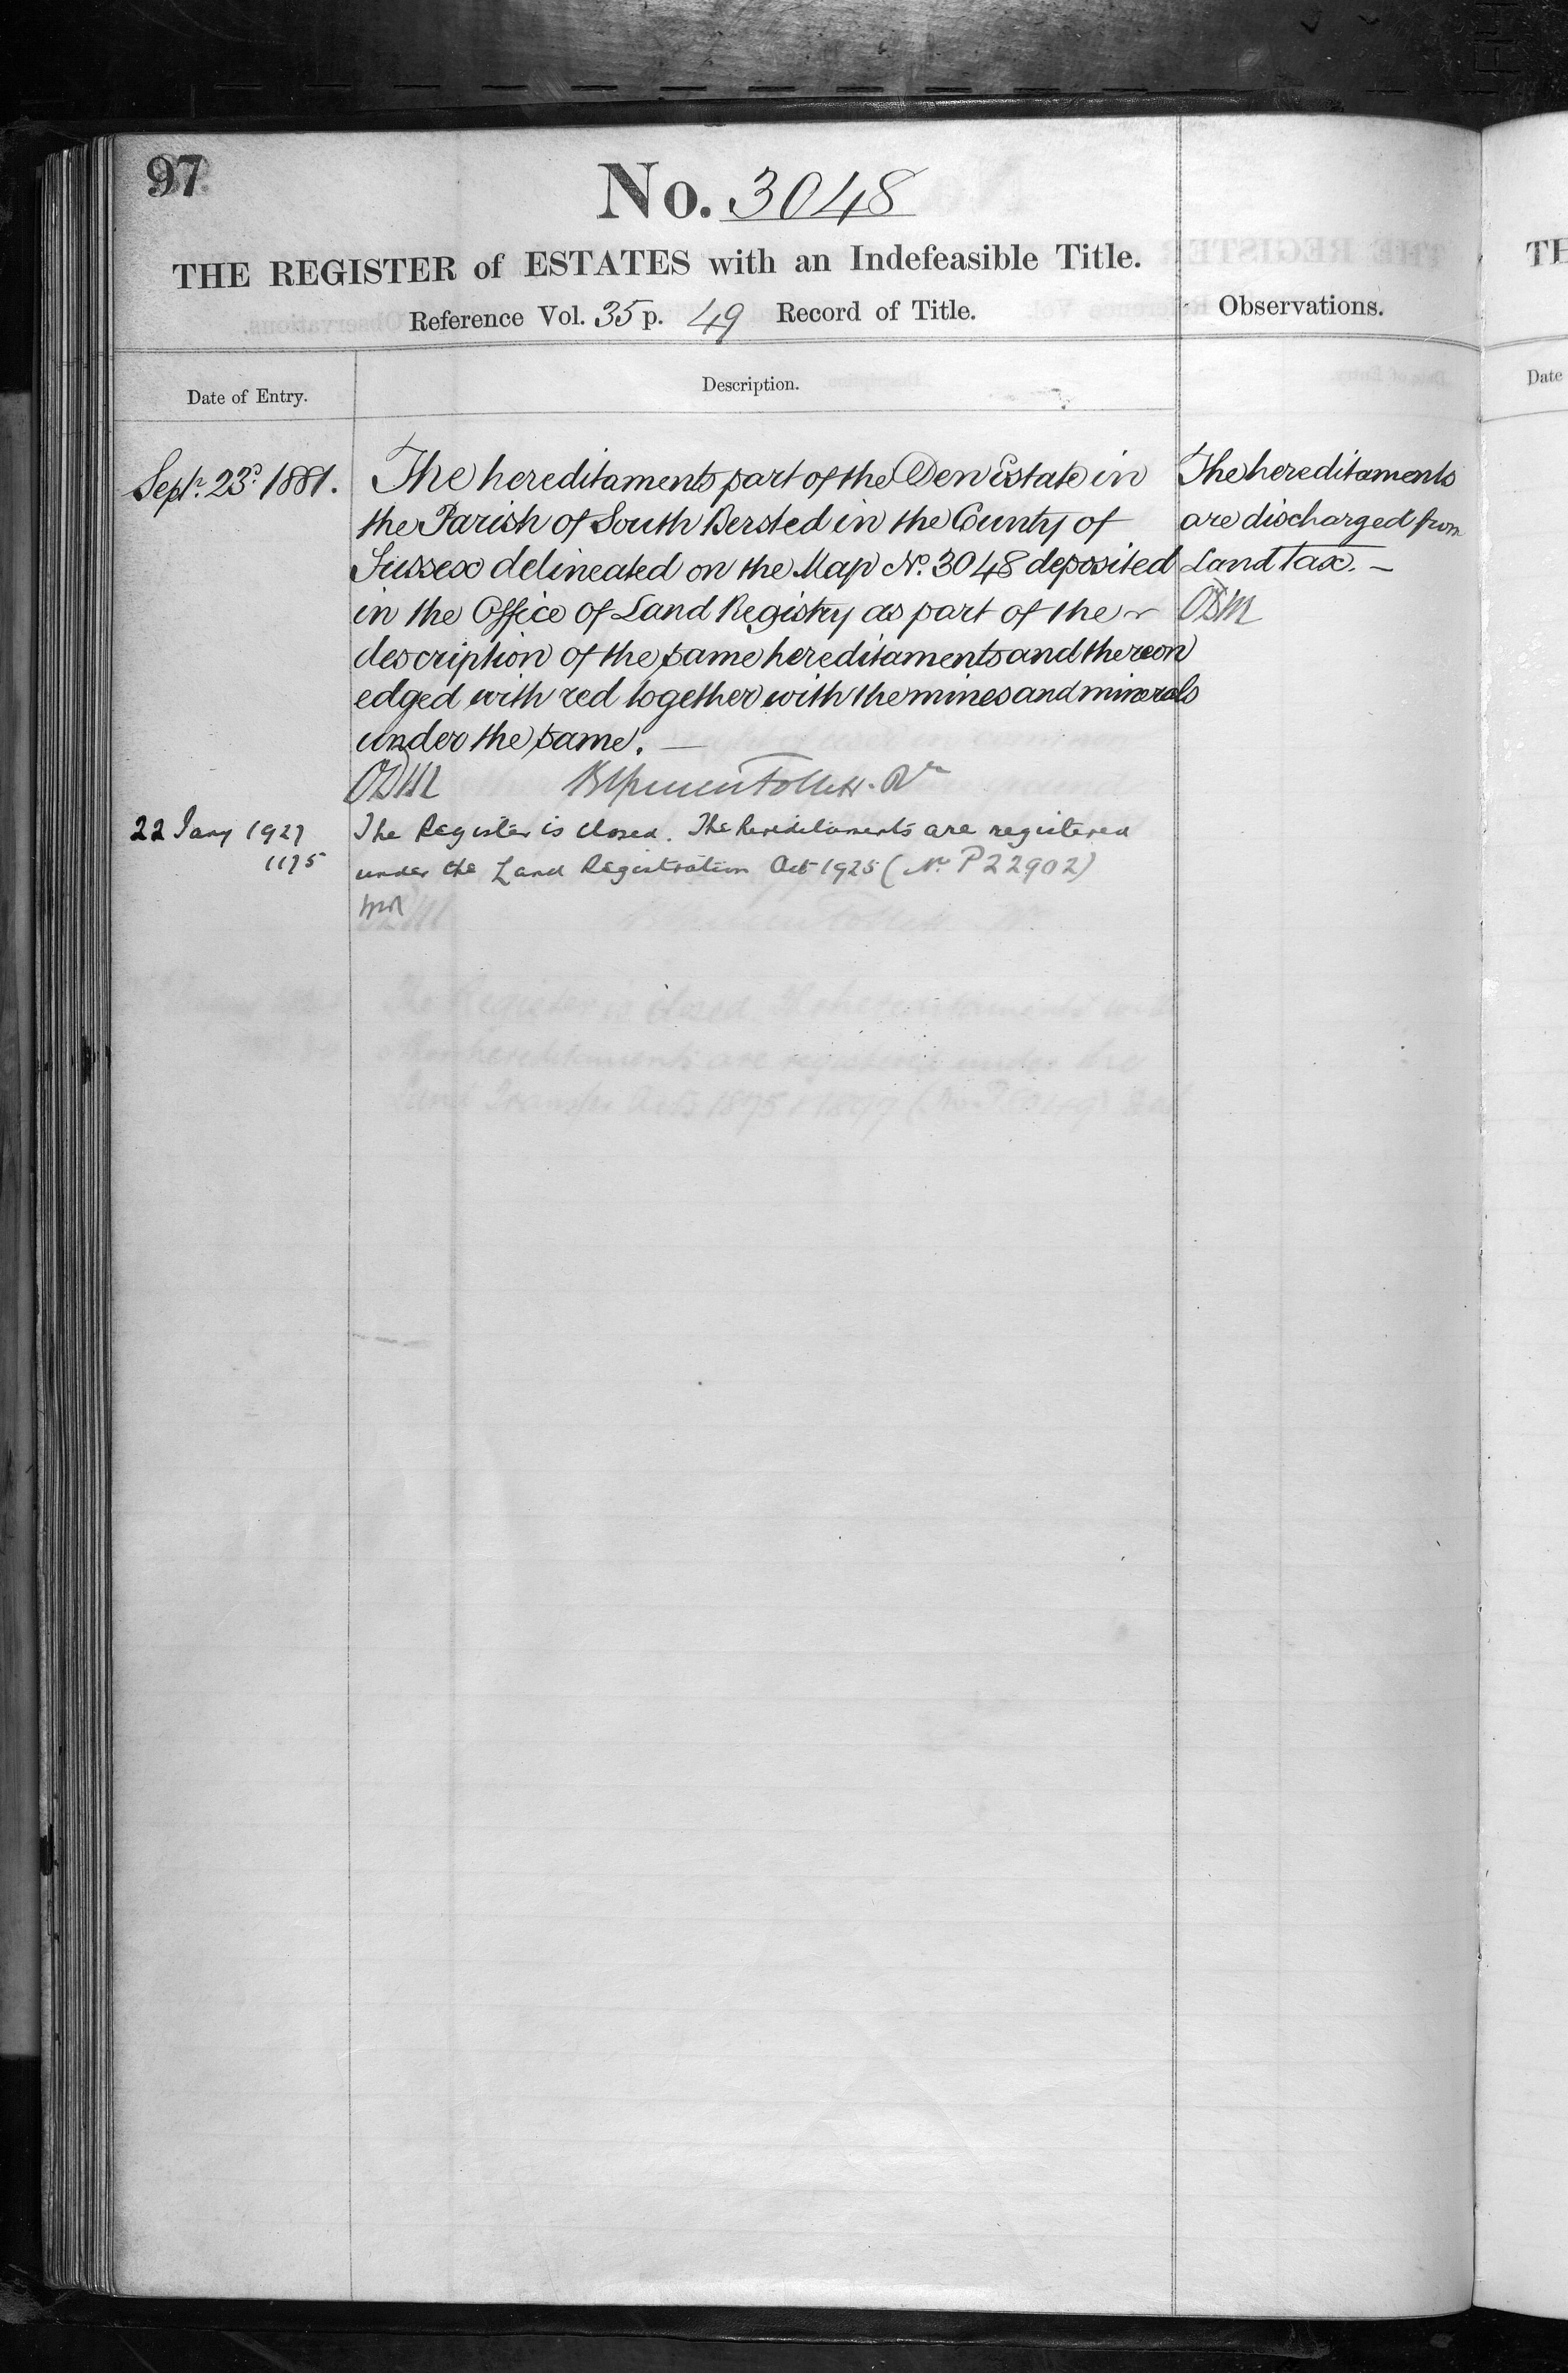 97
No. 3048
THE REGISTER of ESTATES with an Indefeasible Title.
Reference Vol. 35 p. 49 Record of Title.
Observations.
Date of Entry.
Description.
Septr. 23d. 1881.
The hereditaments part of the Den Estate in
the Parish of South Bersted in the County of
Sussex delineated on the Map No. 3048 deposited
in the Office of Land Registry as part of the
description of the same hereditaments and thereon
edged with red together with the mines and minerals
under the same. —
The hereditaments
are discharged from
Land tax. —
22 Jany 1927
1175
The Register is closed. The hereditaments are registered
under the Land Registration Act 1925 (No. P22902)
TH
Date